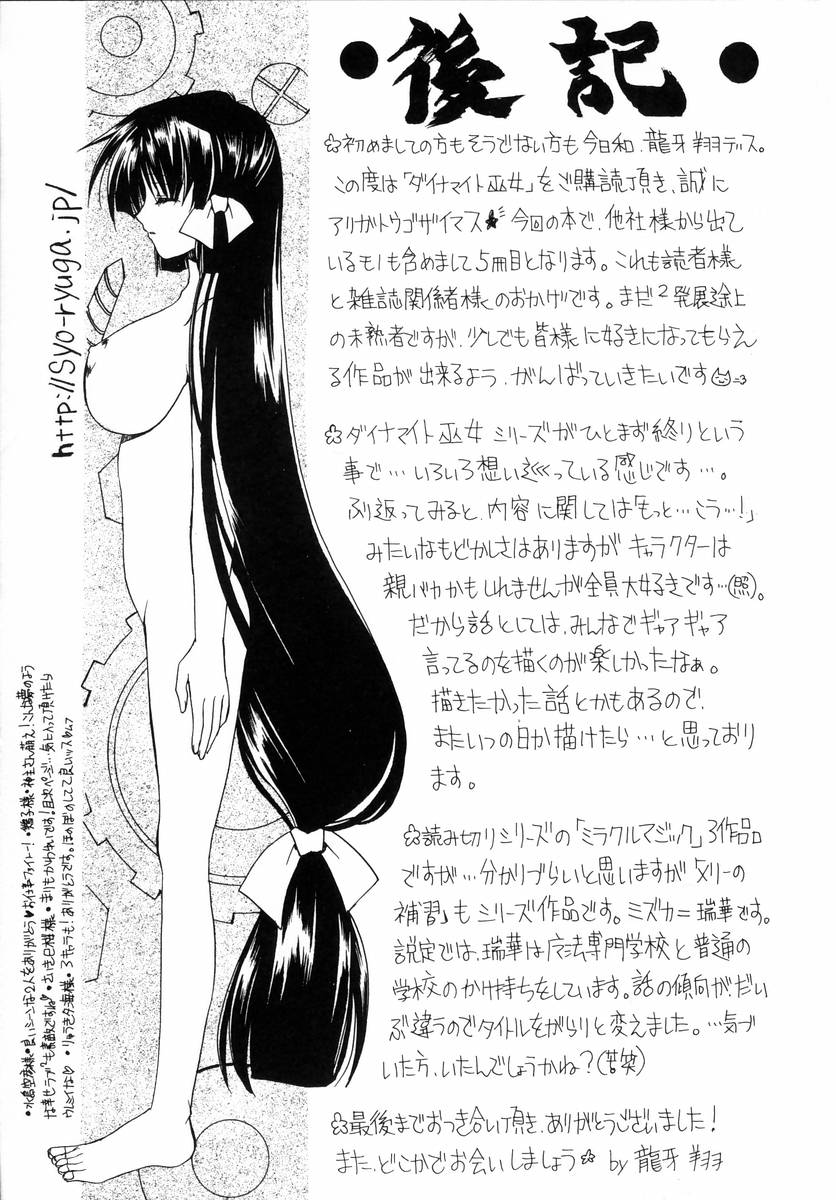 ・後記・
✩初めましての方もそうでない方も今日和、龍牙翔ヲデス。
この度は「ダイナマイト巫女」をご購読頂き、誠に
アリガトウゴザイマス★ 今回の本で、他社様から出て
いるモノも含めまして5冊目となります。これも読者様
と雑誌関係者様のおかげです。まだ2発展途上
の未熟者ですが、少しでも皆様に好きになってもらえ
る作品が出来るよう、がんばっていきたいです
✩ダイナマイト巫女シリーズがひとまず終りという
事で…いろいろ想い巡っている感じです…。
ふり返ってみると、内容に関しては「もっと…こう…!」
みたいなもどかしさはありますがキャラクターは
親バカかもしれませんが全員大好きです…(照)。
だから話としては、みんなでギャアギャア
言ってるのを描くのが楽しかったなぁ。
描きたかった話とかもあるので、
またいつの日か描けたら…と思っており
ます。
✩読み切りシリーズの「ミラクルマジック」3作品
ですが…分かりづらいと思いますが「メリーの
補習」もシリーズ作品です。ミズカ=瑞華です。
設定では、瑞華は魔法専門学校と普通の
学校のかけ持ちをしています。話の傾向がだい
ぶ違うのでタイトルをがらりと変えました。…気づ
いた方、いたんでしょうかね?(苦笑)
✩最後までおつき合い頂き、ありがとうございました!
また、どこかでお会いしましょう✩ by 龍牙翔ヲ
http://Syo-ryuga.jp/
・良いシーンな2人をありがとう♥お仕事ファイトー!
な幸せラブ2も素敵ですね♡
・まりもかわいいです!目次ページ…気に入って頂けたら
・りゅうき夕海様・3キャラも!ありがとうです。ほのぼのしてて良いッス